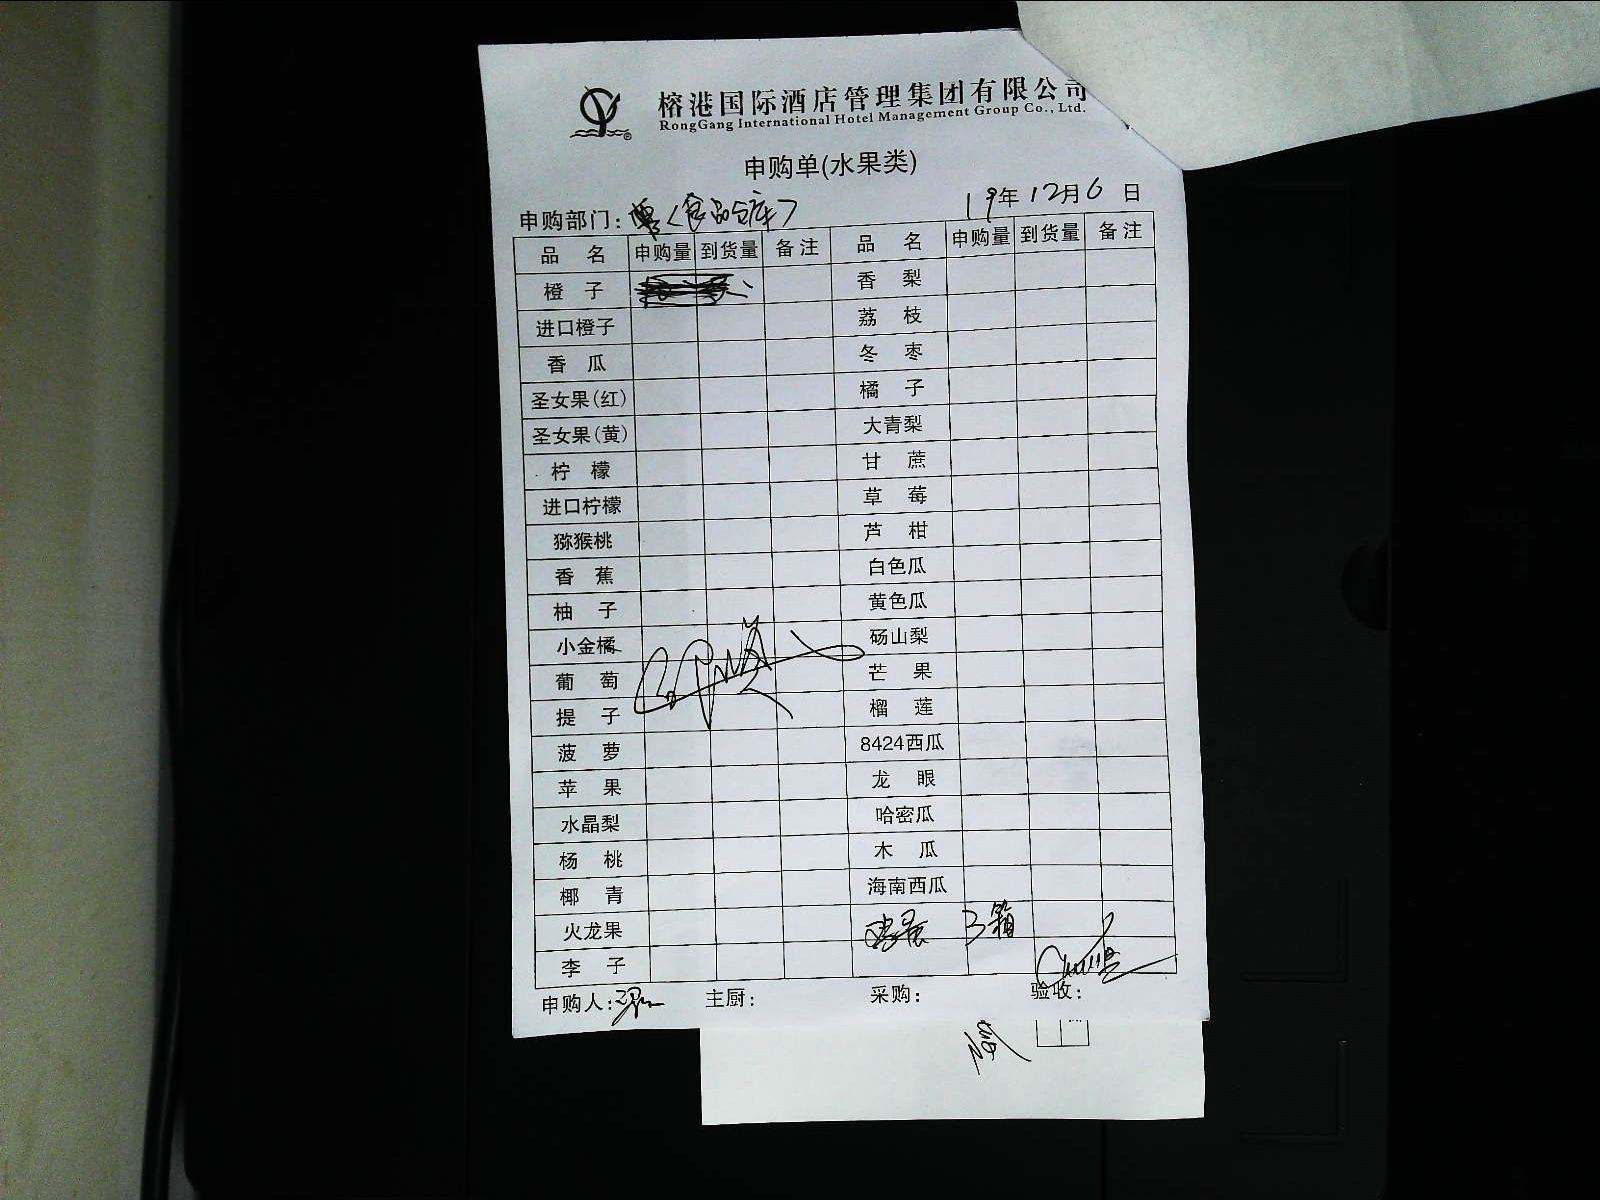 榕港国际酒店管理集团有限公司
RongGang International Hotel Management Group Co., Ltd.
申购单(水果类)
申购部门: (食品仓库) 19年12月6日
品名 申购量 到货量 备注 品名 申购量 到货量 备注
橙子 香梨
进口橙子 荔枝
香瓜 冬枣
圣女果(红) 橘子
圣女果(黄) 大青梨
柠檬 甘蔗
进口柠檬 草莓
猕猴桃 芦柑
香蕉 白色瓜
柚子 黄色瓜
小金橘 砀山梨
葡萄 芒果
提子 榴莲
菠萝 8424西瓜
苹果 龙眼
水晶梨 哈密瓜
杨桃 木瓜
椰青 海南西瓜
火龙果 3箱
李子
申购人: 主厨: 采购: 验收: